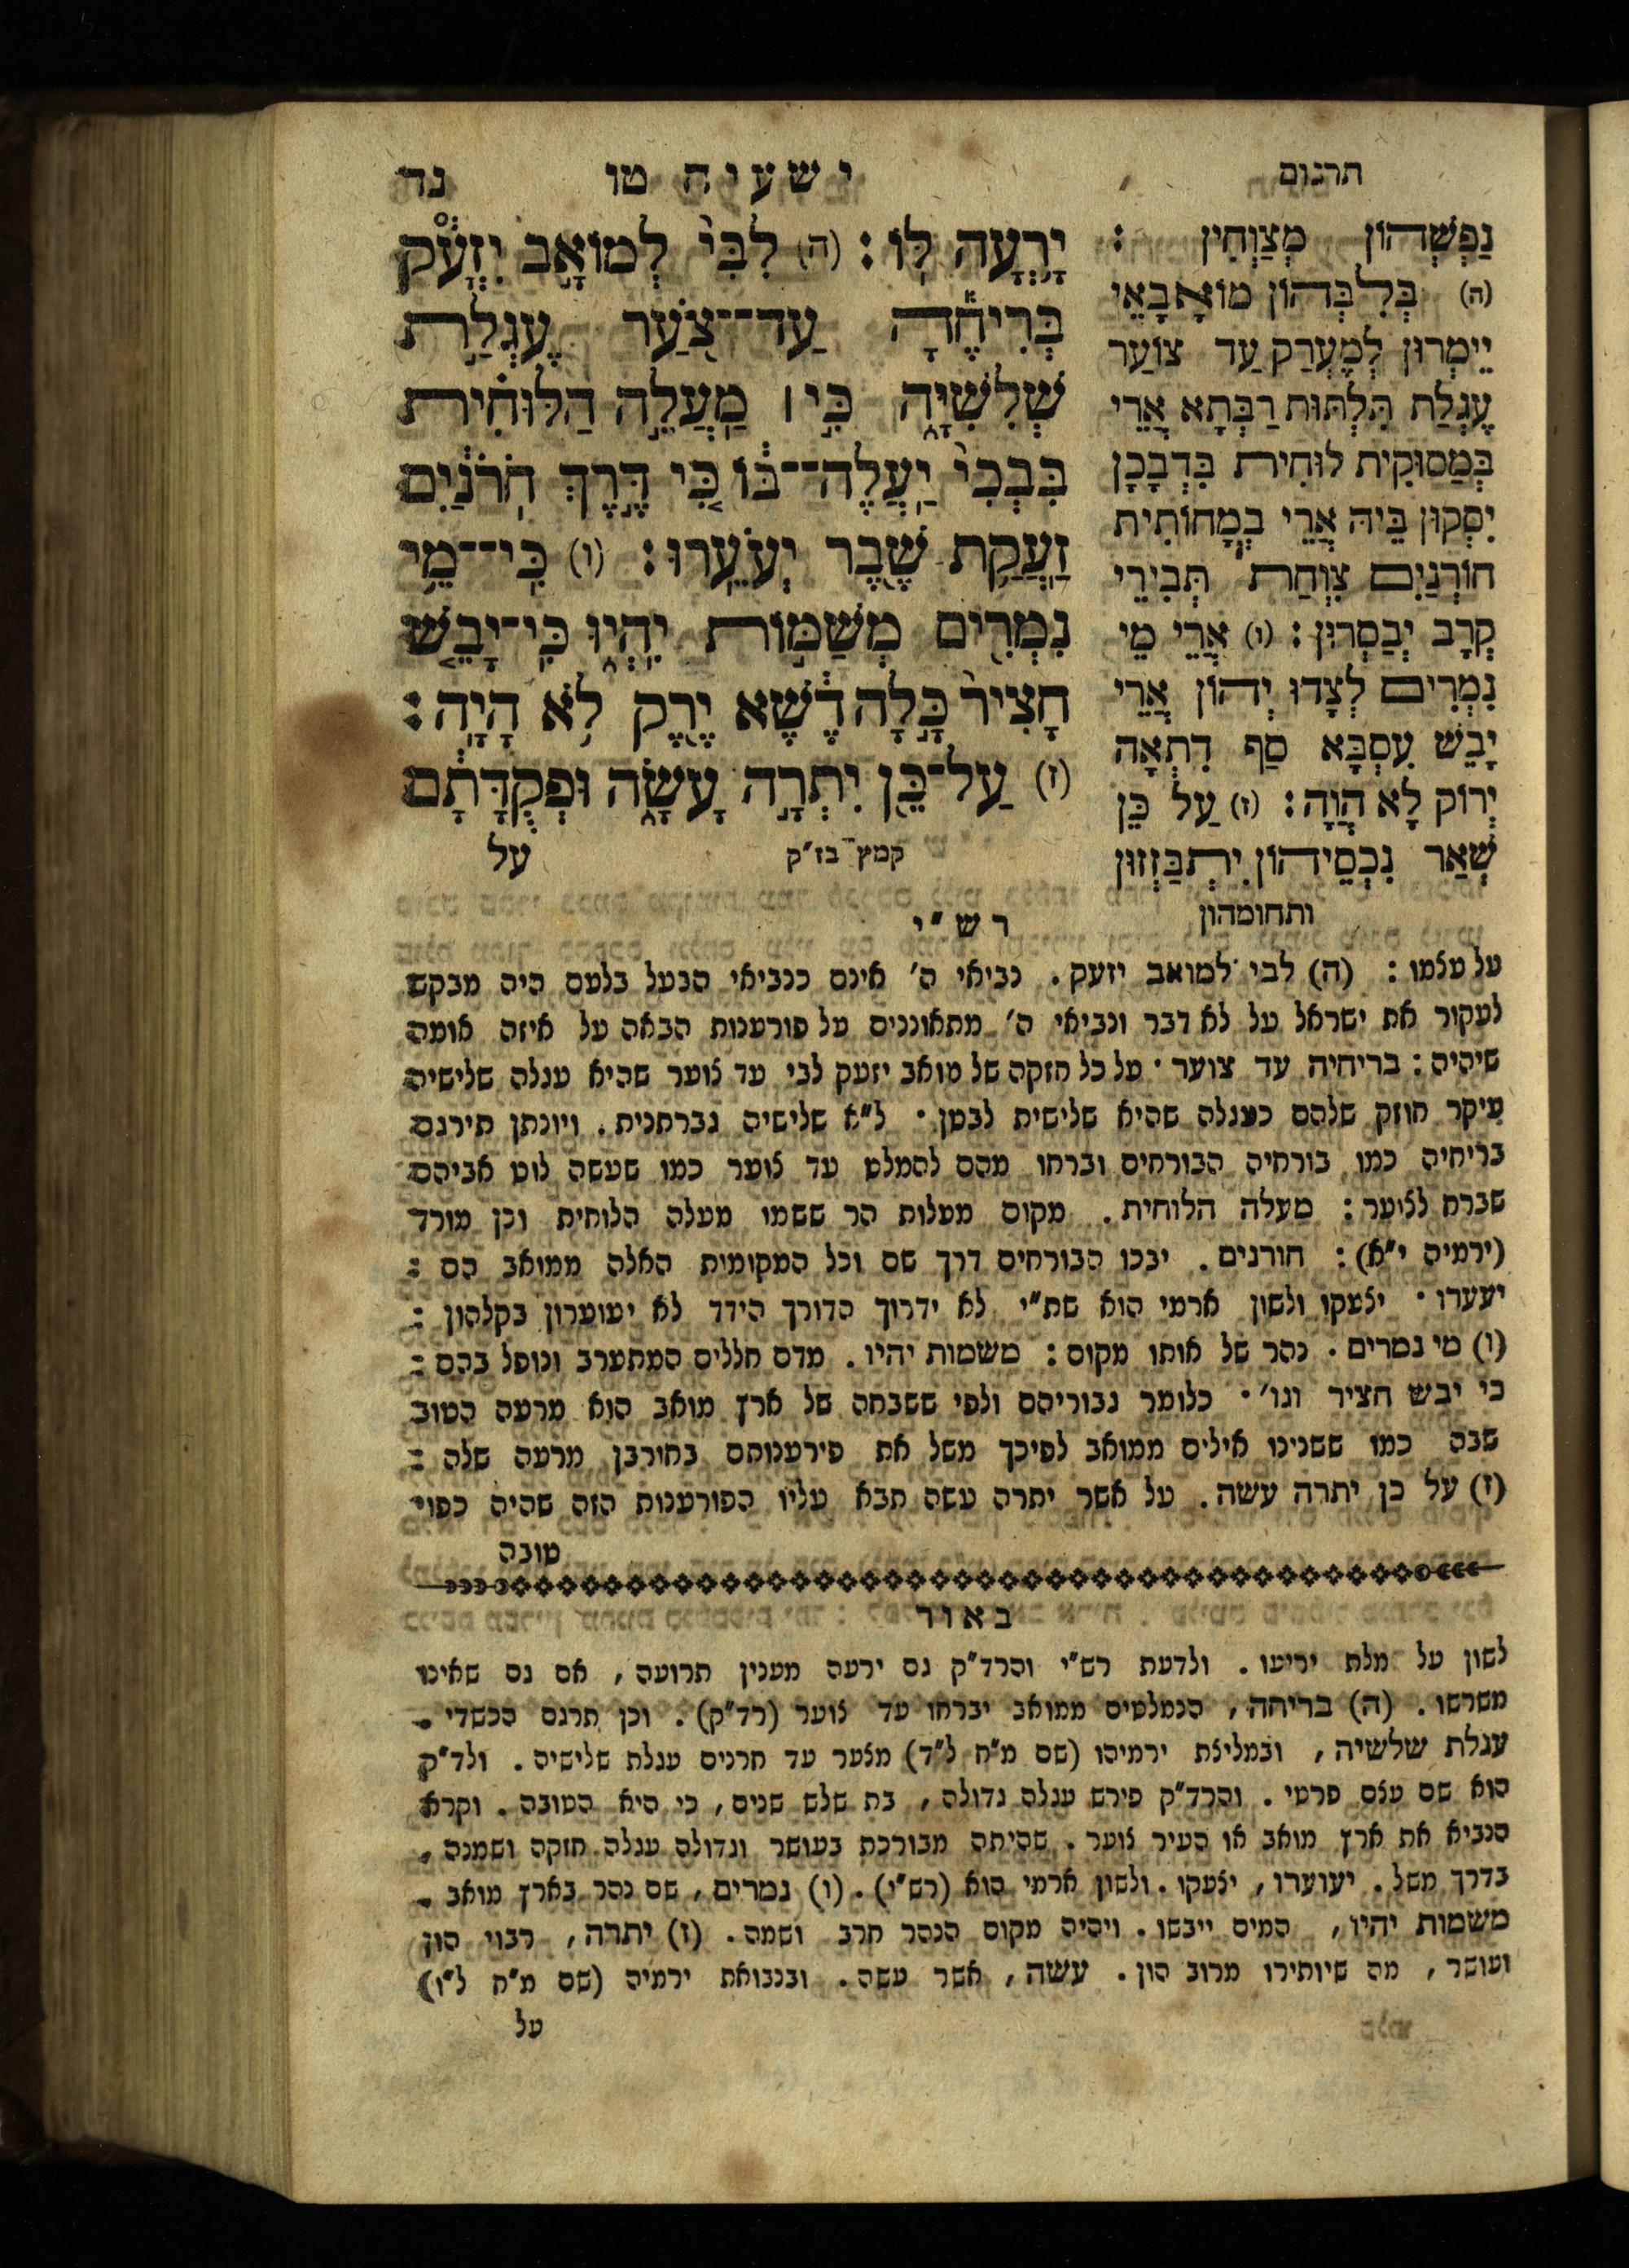 תרגום
ישעיה טו
נד
יָרְעָה לּוֹ : (ה) לִבִּי לְמוֹאָב יִזְעָק
בְּרִיחֶהָ עַד־צֹעַר עֶגְלַת
שְׁלִשִׁיָּה כִּי ׀ מַעֲלֵה הַלּוּחִית
בִּבְכִי יַעֲלֶה־בּוֹ כִּי דֶּרֶךְ חֹרֹנַיִם
זַעֲקַת שֶׁבֶר יְעֹעֵרוּ : (ו) כִּי־מֵי
נִמְרִים מְשַׁמּוֹת יִהְיוּ כִּי־יָבֵשׁ
חָצִיר כָּלָה דֶשֶׁא יֶרֶק לֹא הָיָה :
(ז) עַל־כֵּן יִתְרָה עָשָׂה וּפְקֻדָּתָם
קמץ בז״ק
על
נַפְשְׁהוֹן מְצַוְחִין :
(ה) בְּלִבְּהוֹן מוֹאָבָאֵי
יֵימְרוּן לְמֶעְרַק עַד צוֹעַר
עֶגְלַת תִּלְתּוּת רַבְּתָא אֲרֵי
בְּמַסוּקִית לוּחִית בִּדְבָכָן
יִסְקוּן בֵּיהּ אֲרֵי בְמָחוֹתִית
חוֹרְנַיִם צִוְחַת תְּבִירֵי
קְרָב יְבַסְרוּן : (ו) אֲרֵי מֵי
נִמְרִים לְצָדוּ יְהוֹן אֲרֵי
יָבֵשׁ עִסְבָּא סַף דִתְאָה
יְרוֹק לָא הֲוָה : (ז) עַל כֵּן
שְׁאַר נִכְסֵיהוֹן יִתְבַּזְזוּן
ותחומהון
רש״י
על עצמו : (ה) לבי למואב יזעק . נביאי ה׳ אינם כנביאי הבעל בלעם היה מבקש
לעקור את ישראל על לא דבר ונביאי ה׳ מתאוננים על פורענות הבאה על איזה אומה
שיהיה : בריחיה עד צוער · על כל חזקה של מואב יזעק לבי עד צוער שהיא עגלה שלישיה
עיקר חוזק שלהם כעגלה שהיא שלישית לבטן · ל״א שלישיה גברתנית . ויונתן תירגם
בריחיה כמו בורחיה הבורחים וברחו מהם להמלט עד צוער כמו שעשה לוט אביהם
שברח לצוער : מעלה הלוחית . מקום מעלות הר ששמו מעלה הלוחית וכן מורד
(ירמיה י״א) : חורנים . יבכו הבורחים דרך שם וכל המקומית האלה ממואב הם :
יעערו · יצעקו ולשון ארמי הוא שת״י לא ידרוך הדורך הידד לא יעוערון בקלהון :
(ו) מי נמרים . נהר של אותו מקום : משמות יהיו . מדם חללים המתערב ונופל בהם :
כי יבש חציר וגו׳ · כלומר גבוריהם ולפי ששבחה של ארץ מואב הוא מרעה הטוב
שבה כמו ששנינו אילים ממואב לפיכך משל את פירענותם בחורבן מרעה שלה :
(ז) על כן יתרה עשה . על אשר יתרה עשה תבא עליו הפורענות הזה שהיה כפוי
טובה
באור
לשון על מלת יריעו . ולדעת רש״י והרד״ק גם ירעה מענין תרועה , אם גם שאינו
משרשו . (ה) בריחה , הנמלטים ממואב יברחו עד צוער (רד״ק) . וכן תרגם הכשדי .
עגלת שלשיה , ובמליצת ירמיהו (שם מ״ח ל״ד) מצער עד חרנים עגלת שלישיה . ולד״ק
הוא שם עצם פרטי . והרד״ק פירש עגלה גדולה , בת שלש שנים , כי היא הטובה . וקרא
הנביא את ארץ מואב או העיר צוער . שהיתה מבורכת בעושר וגדולה עגלה חזקה ושמנה .
בדרך משל . יעוערו , יצעקו . ולשון ארמי הוא (רש״י) . (ו) נמרים , שם נהר בארץ מואב .
משמות יהיו , המים ייבשו . ויהיה מקום הנהר חרב ושמה . (ז) יתרה , רבוי הון
ועושר , מה שיותירו מרוב הון . עשה , אשר עשה . ובנבואת ירמיה (שם מ״ח ל״ו)
על